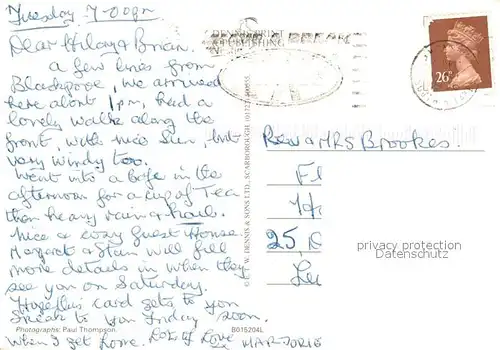 Tuesday 7-00pm
Dear Hilary & Brian.
a few lines from
Blackpool, we arrived
here about 1pm, had a
lovely walk along the
front, with nice Sun, but
very windy too.
Went into a cafe in the
afternoon for a cup of Tea
then heavy rain & hail.
Nice & cosy Guest House
Margaret & Stan will fill
more details in when they
see you on Saturday.
Hope this card gets to you
speak to you Friday soon.
when I get home. Lots of Love
MARJORIE
Photographs: Paul Thompson.
B015204L
© E. T. W. DENNIS & SONS LTD., SCARBOROUGH
26P
Rev & MRS Brookes.
25,
privacy protection
Datenschutz